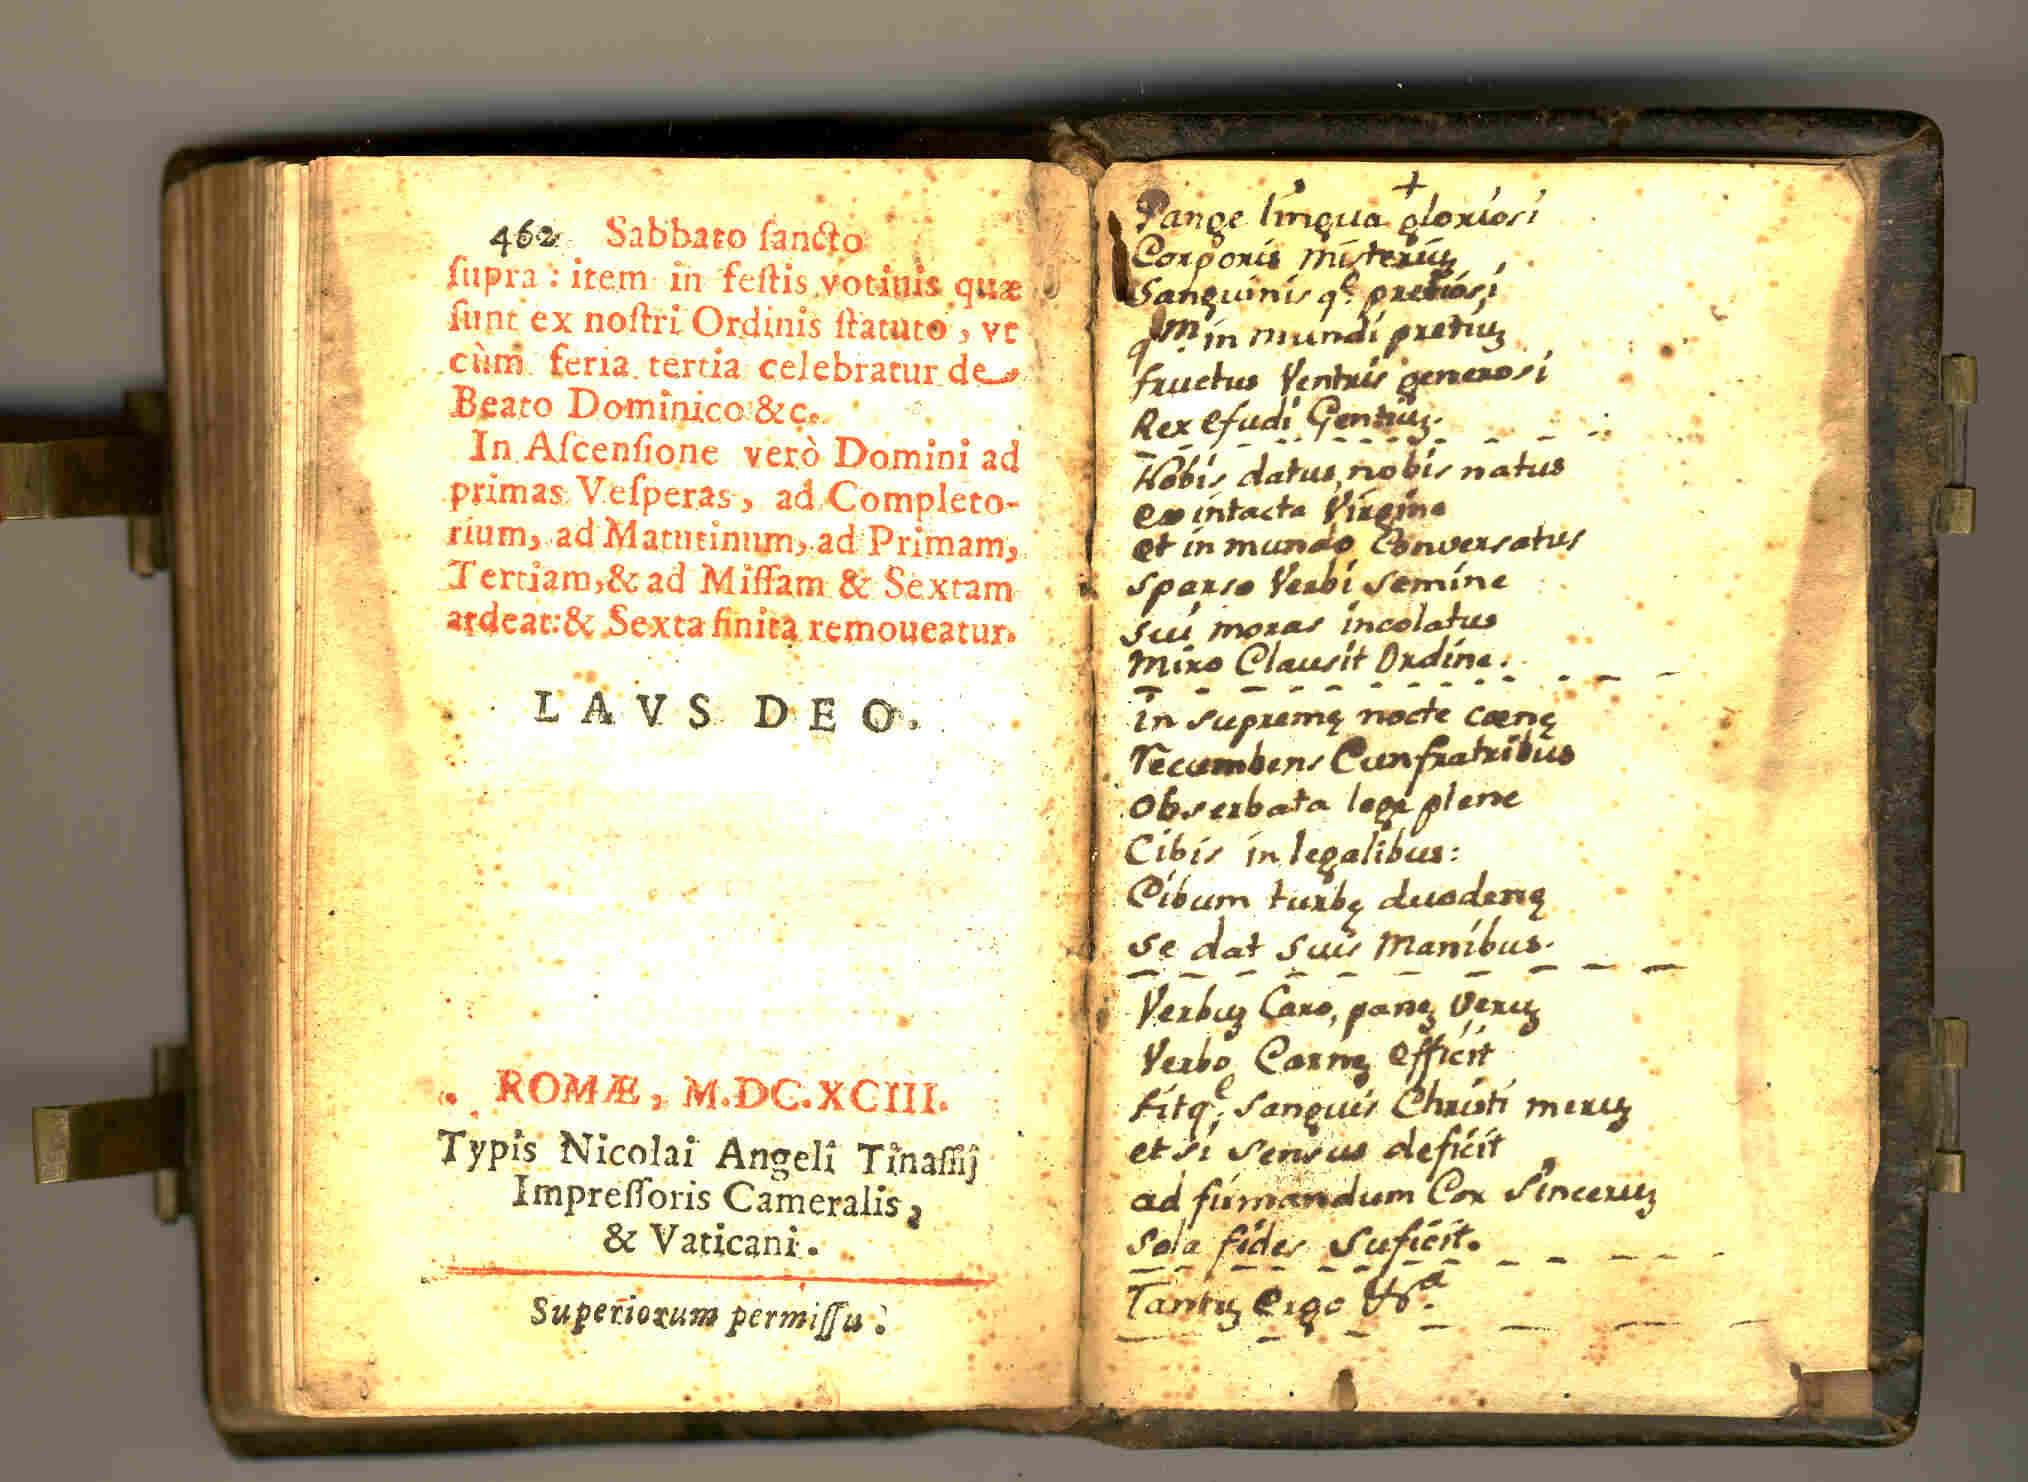 462 Sabbato sancto
supra : item in festis votiuis quæ
sunt ex nostri Ordinis statuto , vt
cùm feria tertia celebratur de
Beato Dominico &c.
In Ascensione verò Domini ad
primas Vesperas, ad Completo-
rium, ad Matutinum, ad Primam,
Tertiam, & ad Missam & Sextam
ardeat: & Sexta finita remoueatur.
LAVS DEO.
ROMÆ, M.DC.XCIII.
Typis Nicolai Angeli Tinassij
Impressoris Cameralis,
& Vaticani.
Superiorum permissu.
+
Pange lingua gloriosi
Corporis misteriuȝ
Sanguinis qᵉ. pretiosi
qᵐ. in mundi pretiuȝ
fructus Ventris generosi
Rex efudi Gentiuȝ.
Nobis datus, nobis natus
ex intacta Virgine
et in mundo Conversatus
sparso Verbi semine
sui moras incolatus
miro Clausit Ordine.
in supremę nocte cœnę
Recumbens Cun fratribus
Obserbata lege plene
Cibis in legalibus:
Cibum turbę duodenę
se dat suis Manibus.
Verbuȝ Caro, paneȝ Veruȝ
Verbo Carneȝ efficit
fitqᵉ; sanguis Christi meruȝ
et si sensus deficit
ad firmandum Cor Sinceruȝ
sola fides suficit.
Tantuȝ ergo &ᵃ.